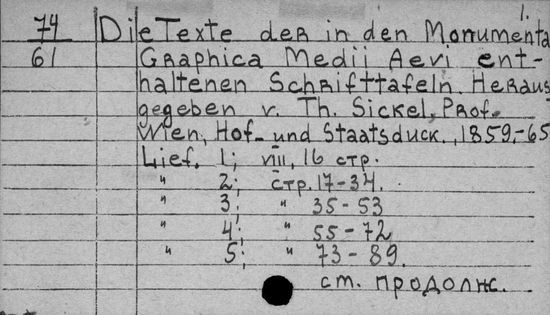 1.
74
61
Die Texte der in den Monumenta
Graphica Medii Aevi ent-
haltenen Schrifttafeln. Heraus
gegeben v. Th. Sickel, Prof.
Wien, Hof- und Staatsduck., 1859-65
Lief. 1; VIII, 16 стр.
" 2; стр. 17-34.
" 3; " 35-53
" 4; " 55-72
" 5; " 73-89.
см. продолж.